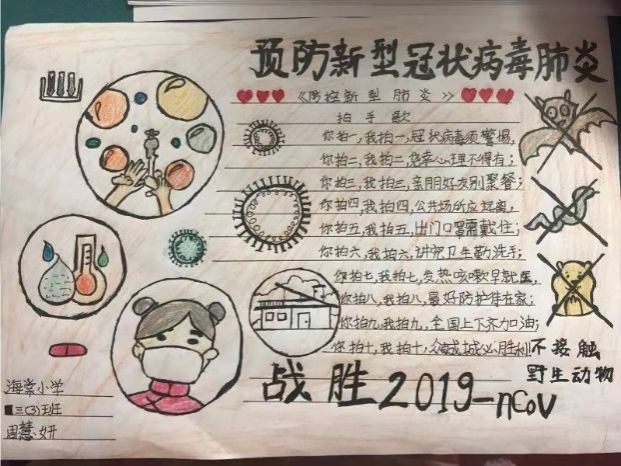 预防新型冠状病毒肺炎
《防控新型肺炎》
拍手歌
你拍一,我拍一,冠状病毒须警惕,
你拍二,我拍二,侥幸心理不得有;
你拍三,我拍三,亲朋好友别聚餐;
你拍四,我拍四,公共场所应远离,
你拍五,我拍五,出门口罩需戴住;
你拍六,我拍六,讲究卫生勤洗手;
你拍七,我拍七,发热咳嗽早就医,
你拍八,我拍八,最好防护待在家;
你拍九,我拍九,全国上下齐加油;
你拍十,我拍十,众志成城必胜利
不接触
野生动物
战胜2019-nCoV
海棠小学
三(3)班
周慧妍